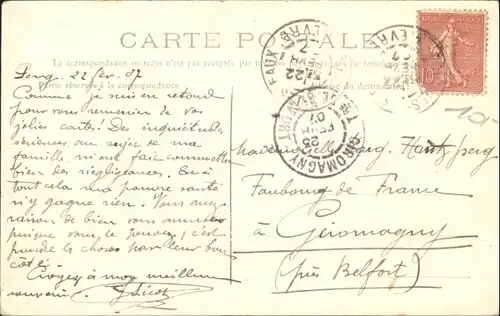 CARTE POSTALE
La correspondance au recto n'est pas acceptée par
Partie réservée à la correspondance
22 fév. 07
Comme je suis en retard
pour vous remercier de vos
jolies cartes! Des inquiétudes
sérieuses au sujet de ma
famille m'ont fait commettre
bien des négligences. Et si
tout cela ma pauvre santé
n'y gagne rien. Vous avez
raison de bien vous amuser
puisque vous le pouvez, c'est
prendre les choses par leur bon
côté.
Croyez à mon meilleur
souvenir.
Mademoiselle
Faubourg de France
à Giromagny
(près Belfort)
GIROMAGNY
23
FEVR
07
22
10